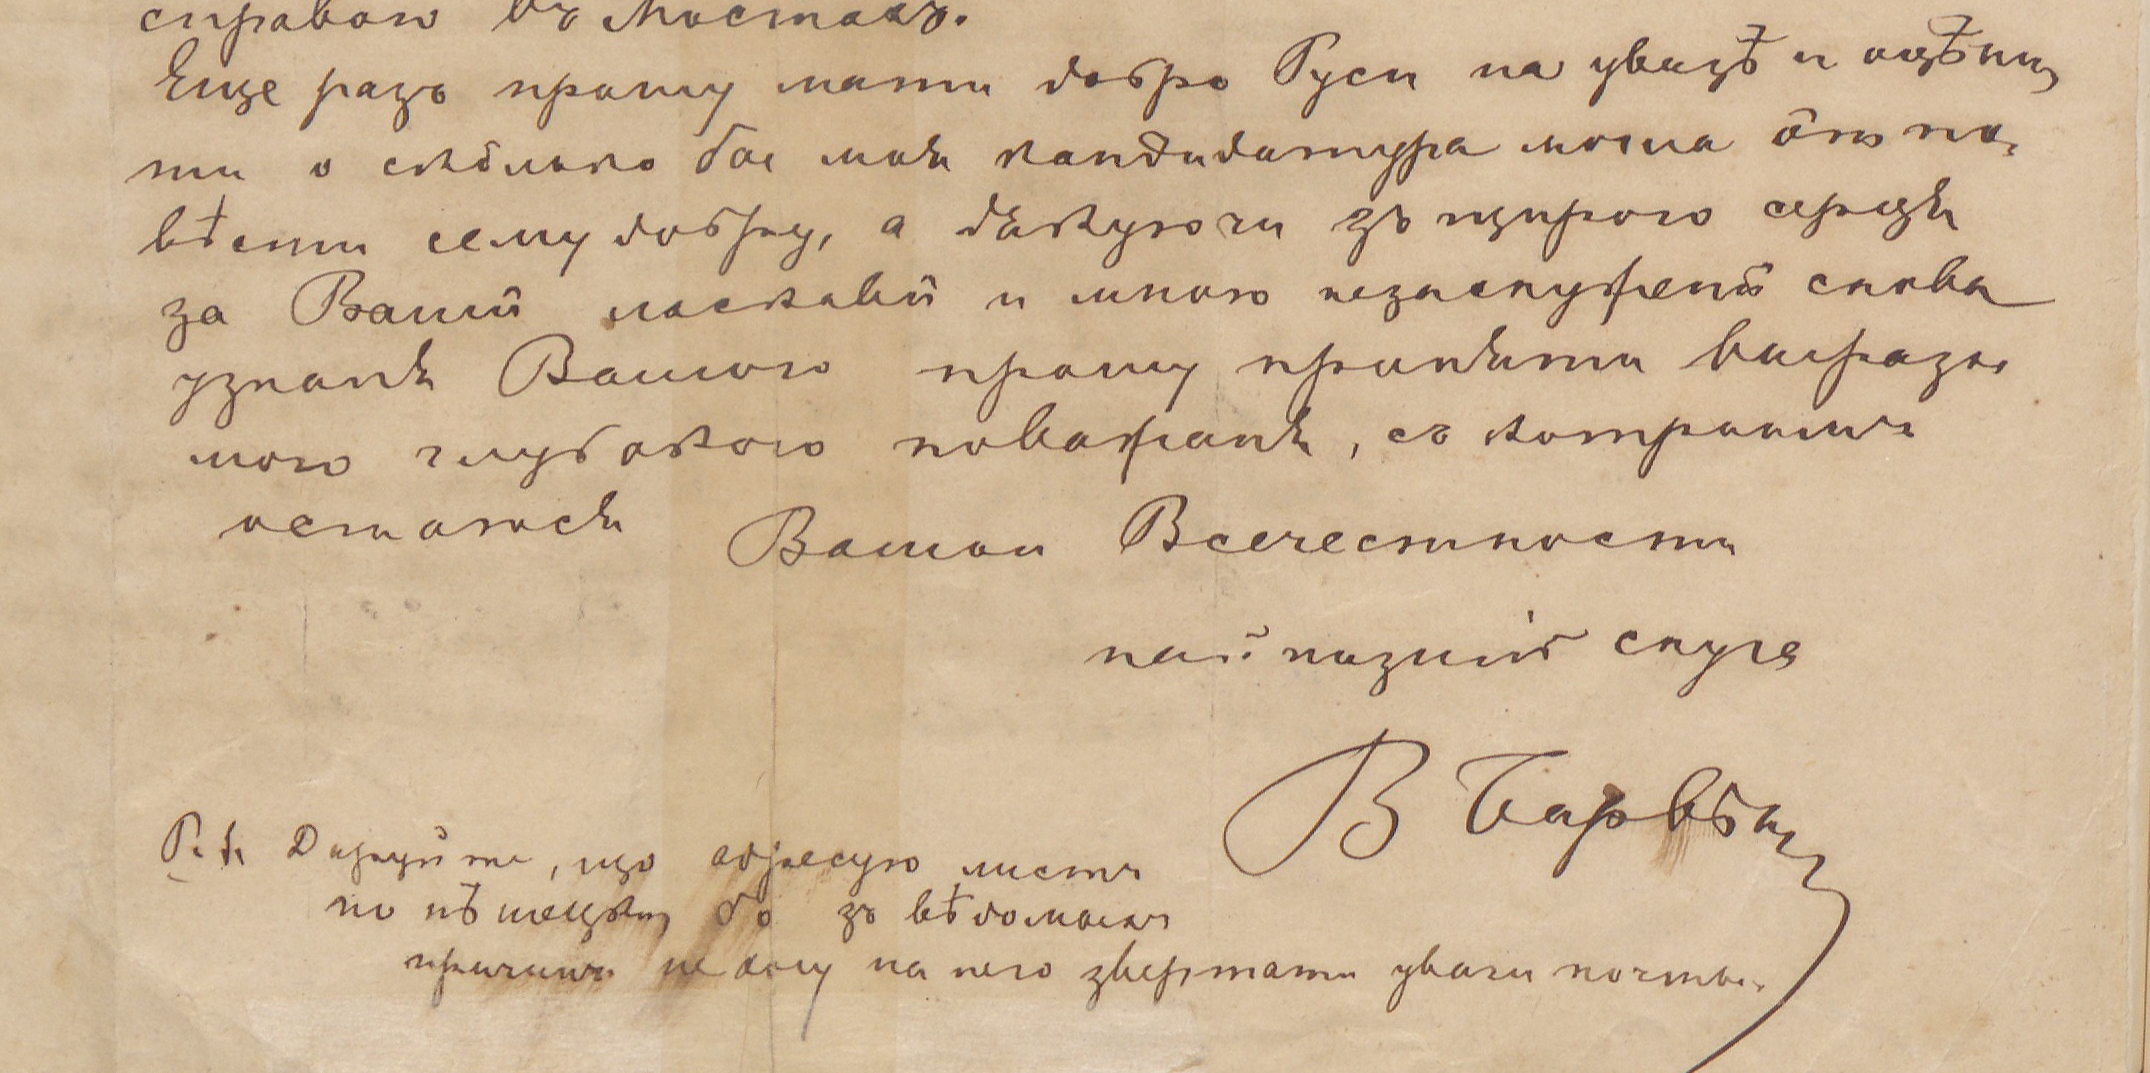 справою въ Мостахъ.
Еще разъ прошу мати добро Руси на увазѣ и оцѣни
ти о скôлько бы моя кандидатура могла ôтпо-
вѣсти сему добру, а дякуючи зъ щирого серця
за Вашӥ ласкавӥ и мною незаслуженӥ слова
узнаня Вашого прошу приняти выразы
мого глубокого поважаня, съ котрымъ
остаюся Вашои Всечестности
найнизшiй слуга
В Барвѣнс
P. S. Даруйте, що адресую листъ
по нѣмецки бо зъ вѣдомыхъ
причинъ не хочу на него звертати уваги почты.